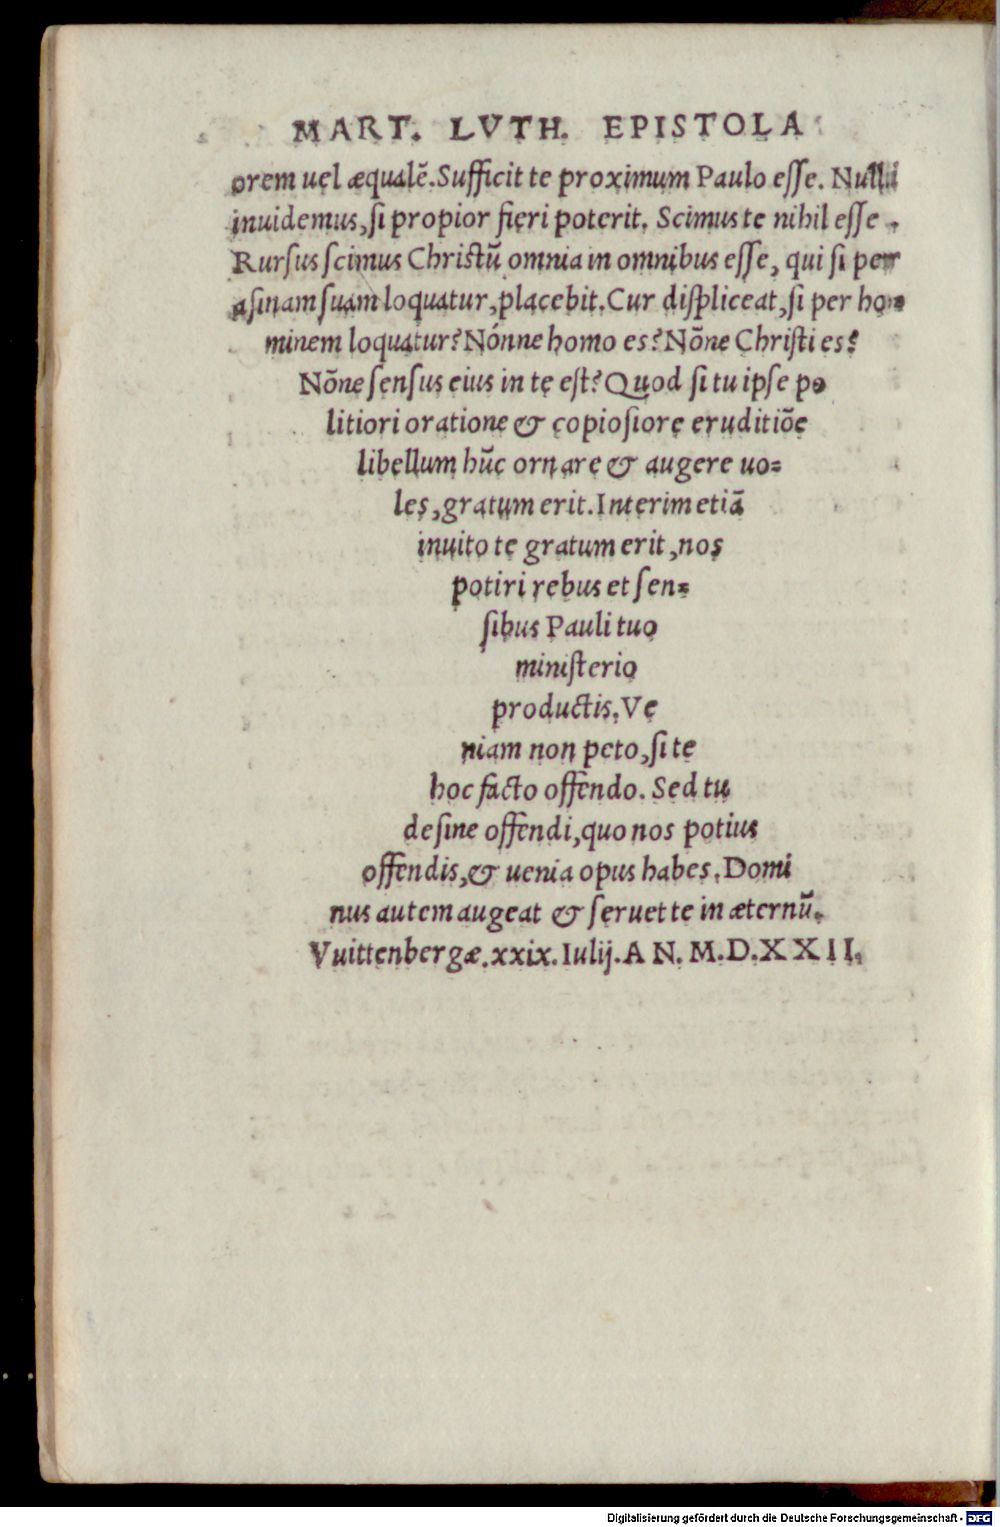 MART. LVTH. EPISTOLA
orem uel æqualẽ. Sufficit te proximum Paulo esse. Nulli
inuidemus, si propior fieri poterit. Scimus te nihil esse.
Rursus scimus Christũ omnia in omnibus esse, qui si per
asinam suam loquatur, placebit. Cur displiceat, si per ho=
minem loquatur? Nónne homo es? Nõne Christi es?
Nõne sensus eius in te est? Quod si tu ipse po
litiori oratione & copiosiore eruditiõe
libellum hũc ornare & augere uo=
les, gratum erit. Interim etiã
inuito te gratum erit, nos
potiri rebus et sen=
sibus Pauli tuo
ministerio
productis. Ve
niam non peto, si te
hoc facto offendo. Sed tu
desine offendi, quo nos potius
offendis, & uenia opus habes. Domi
nus autem augeat & seruet te in æternũ.
Vuittenbergæ. xxix. Iulij. AN. M.D.XXII.
Digitalisierung gefördert durch die Deutsche Forschungsgemeinschaft - DFG